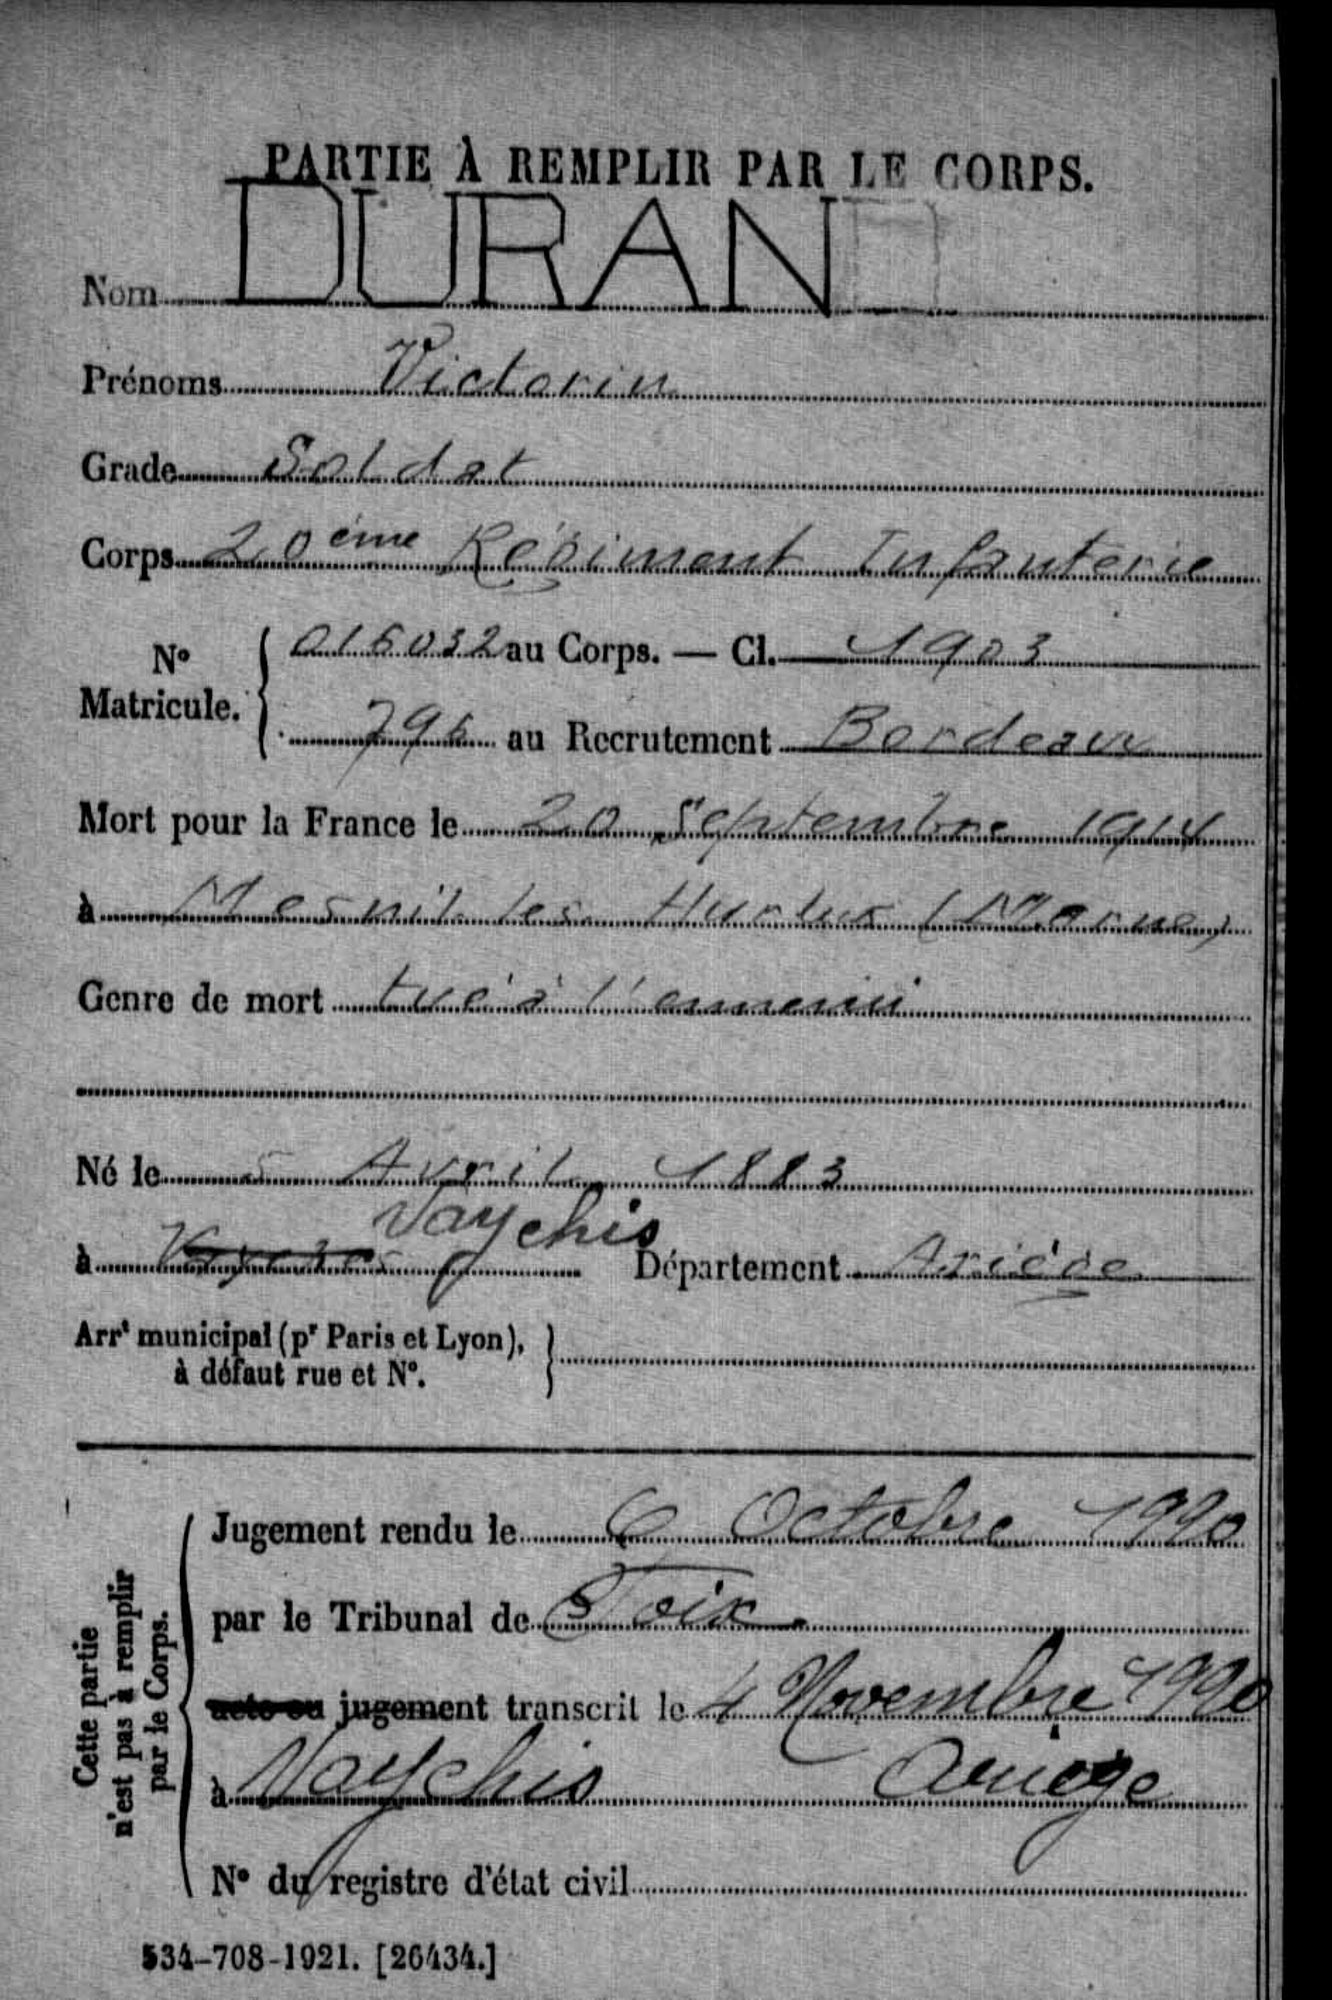 PARTIE À REMPLIR PAR LE CORPS.
Nom DURAN
Prénoms Victorin
Grade Soldat
Corps 20ème Régiment Infanterie
N° Matricule. 016032 au Corps. — Cl. 1903
796 au Recrutement Bordeaux
Mort pour la France le 20 Septembre 1914
à Mesnil les Hurlus (Marne)
Genre de mort tué à l'ennemi
Né le 5 Avril 1883
Vaychis
à Département Ariège
Arrt municipal (pr Paris et Lyon),
à défaut rue et N°.
Cette partie
n'est pas à remplir
par le Corps.
Jugement rendu le 6 Octobre 1920
par le Tribunal de Foix
acte ou jugement transcrit le 4 Novembre 1920
à Vaychis Ariège
N° du registre d'état civil
534-708-1921. [26434.]